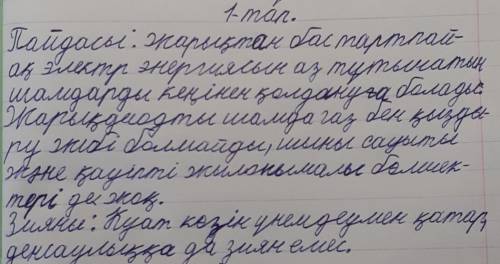 1-топ.
Пайдасы: жарықтан бас тартпай-
ақ электр энергиясын аз тұтынатын
шамдарды кеңінен қолдануға болады.
Жарықдиодты шамда газ бен қызды-
ру жібі болмайды, шыны сауыты
және қауіпті жылжымалы бөлшек-
тері де жоқ.
Зияны: Қуат көзін үнемдеумен қатар,
денсаулыққа да зиян емес.